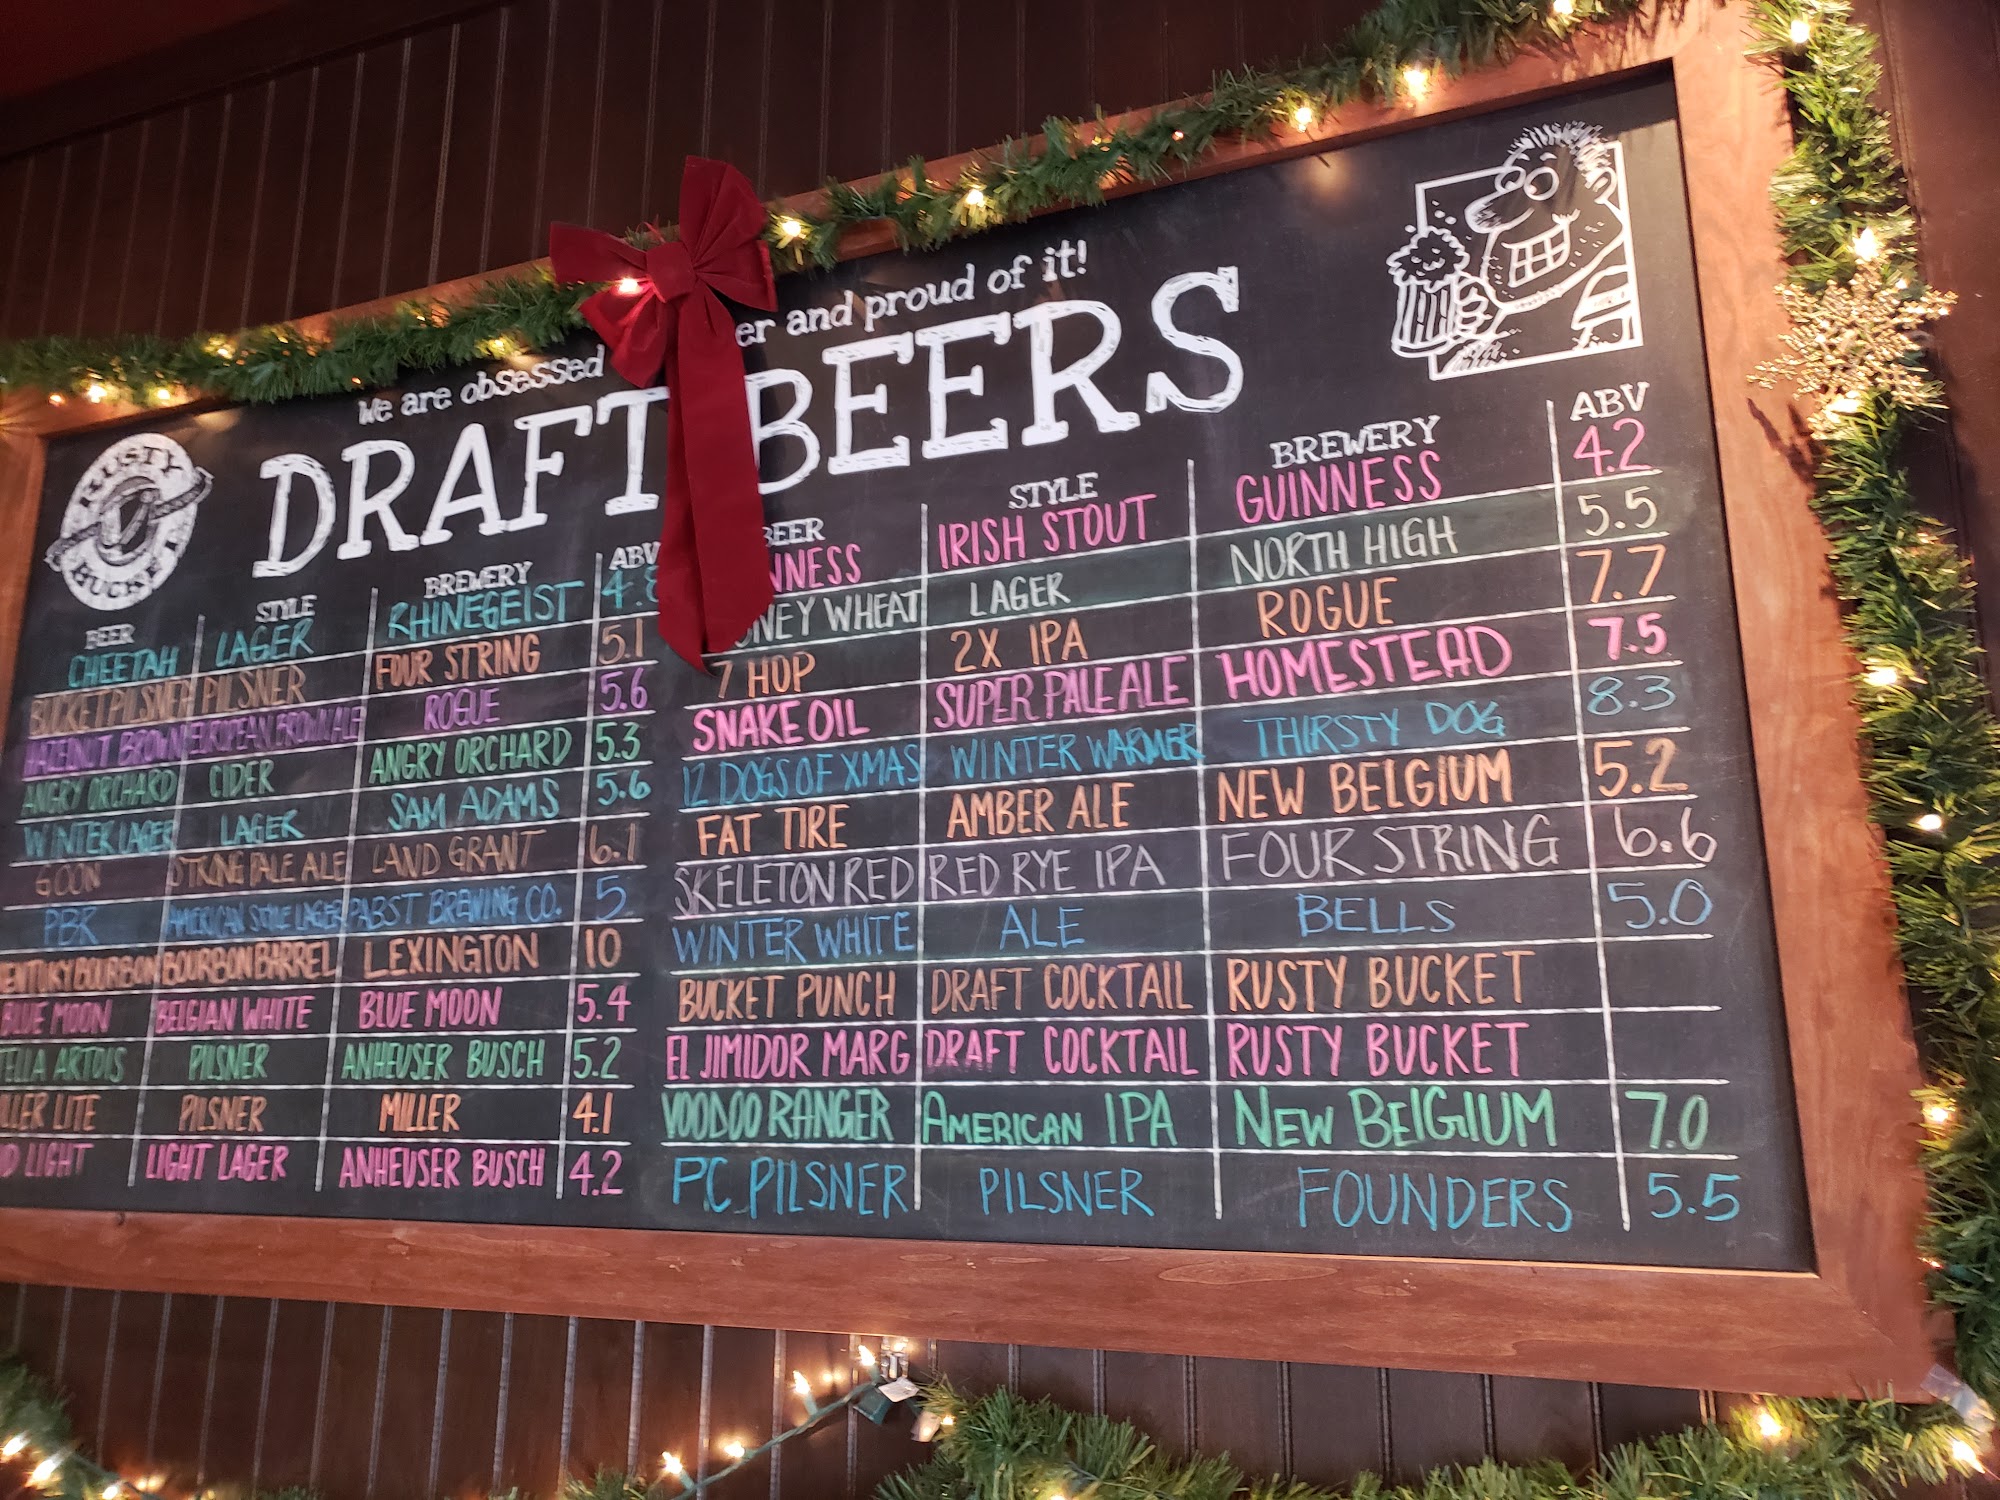 We are obsessed er and proud of it!
DRAFT BEERS
RUSTY BUCKET
BEER STYLE BREWERY ABV
CHEETAH LAGER RHINEGEIST 4.8
BUCKET PILSNER PILSNER FOUR STRING 5.1
HAZELNUT BROWN EUROPEAN BROWN ALE ROGUE 5.6
ANGRY ORCHARD CIDER ANGRY ORCHARD 5.3
WINTER LAGER LAGER SAM ADAMS 5.6
GOON STRONG PALE ALE LAND GRANT 6.1
PBR AMERICAN STYLE LAGER PABST BREWING CO. 5
KENTUCKY BOURBON BOURBON BARREL LEXINGTON 10
BLUE MOON BELGIAN WHITE BLUE MOON 5.4
TELLA ARTOIS PILSNER ANHEUSER BUSCH 5.2
LLER LITE PILSNER MILLER 4.1
D LIGHT LIGHT LAGER ANHEUSER BUSCH 4.2
BEER STYLE BREWERY ABV
NNESS IRISH STOUT GUINNESS 4.2
ONEY WHEAT LAGER NORTH HIGH 5.5
7 HOP 2X IPA ROGUE 7.7
SNAKE OIL SUPER PALE ALE HOMESTEAD 7.5
12 DOGS OF XMAS WINTER WARMER THIRSTY DOG 8.3
FAT TIRE AMBER ALE NEW BELGIUM 5.2
SKELETON RED RED RYE IPA FOUR STRING 6.6
WINTER WHITE ALE BELLS 5.0
BUCKET PUNCH DRAFT COCKTAIL RUSTY BUCKET
EL JIMIDOR MARG DRAFT COCKTAIL RUSTY BUCKET
VOODOO RANGER AMERICAN IPA NEW BELGIUM 7.0
PC PILSNER PILSNER FOUNDERS 5.5